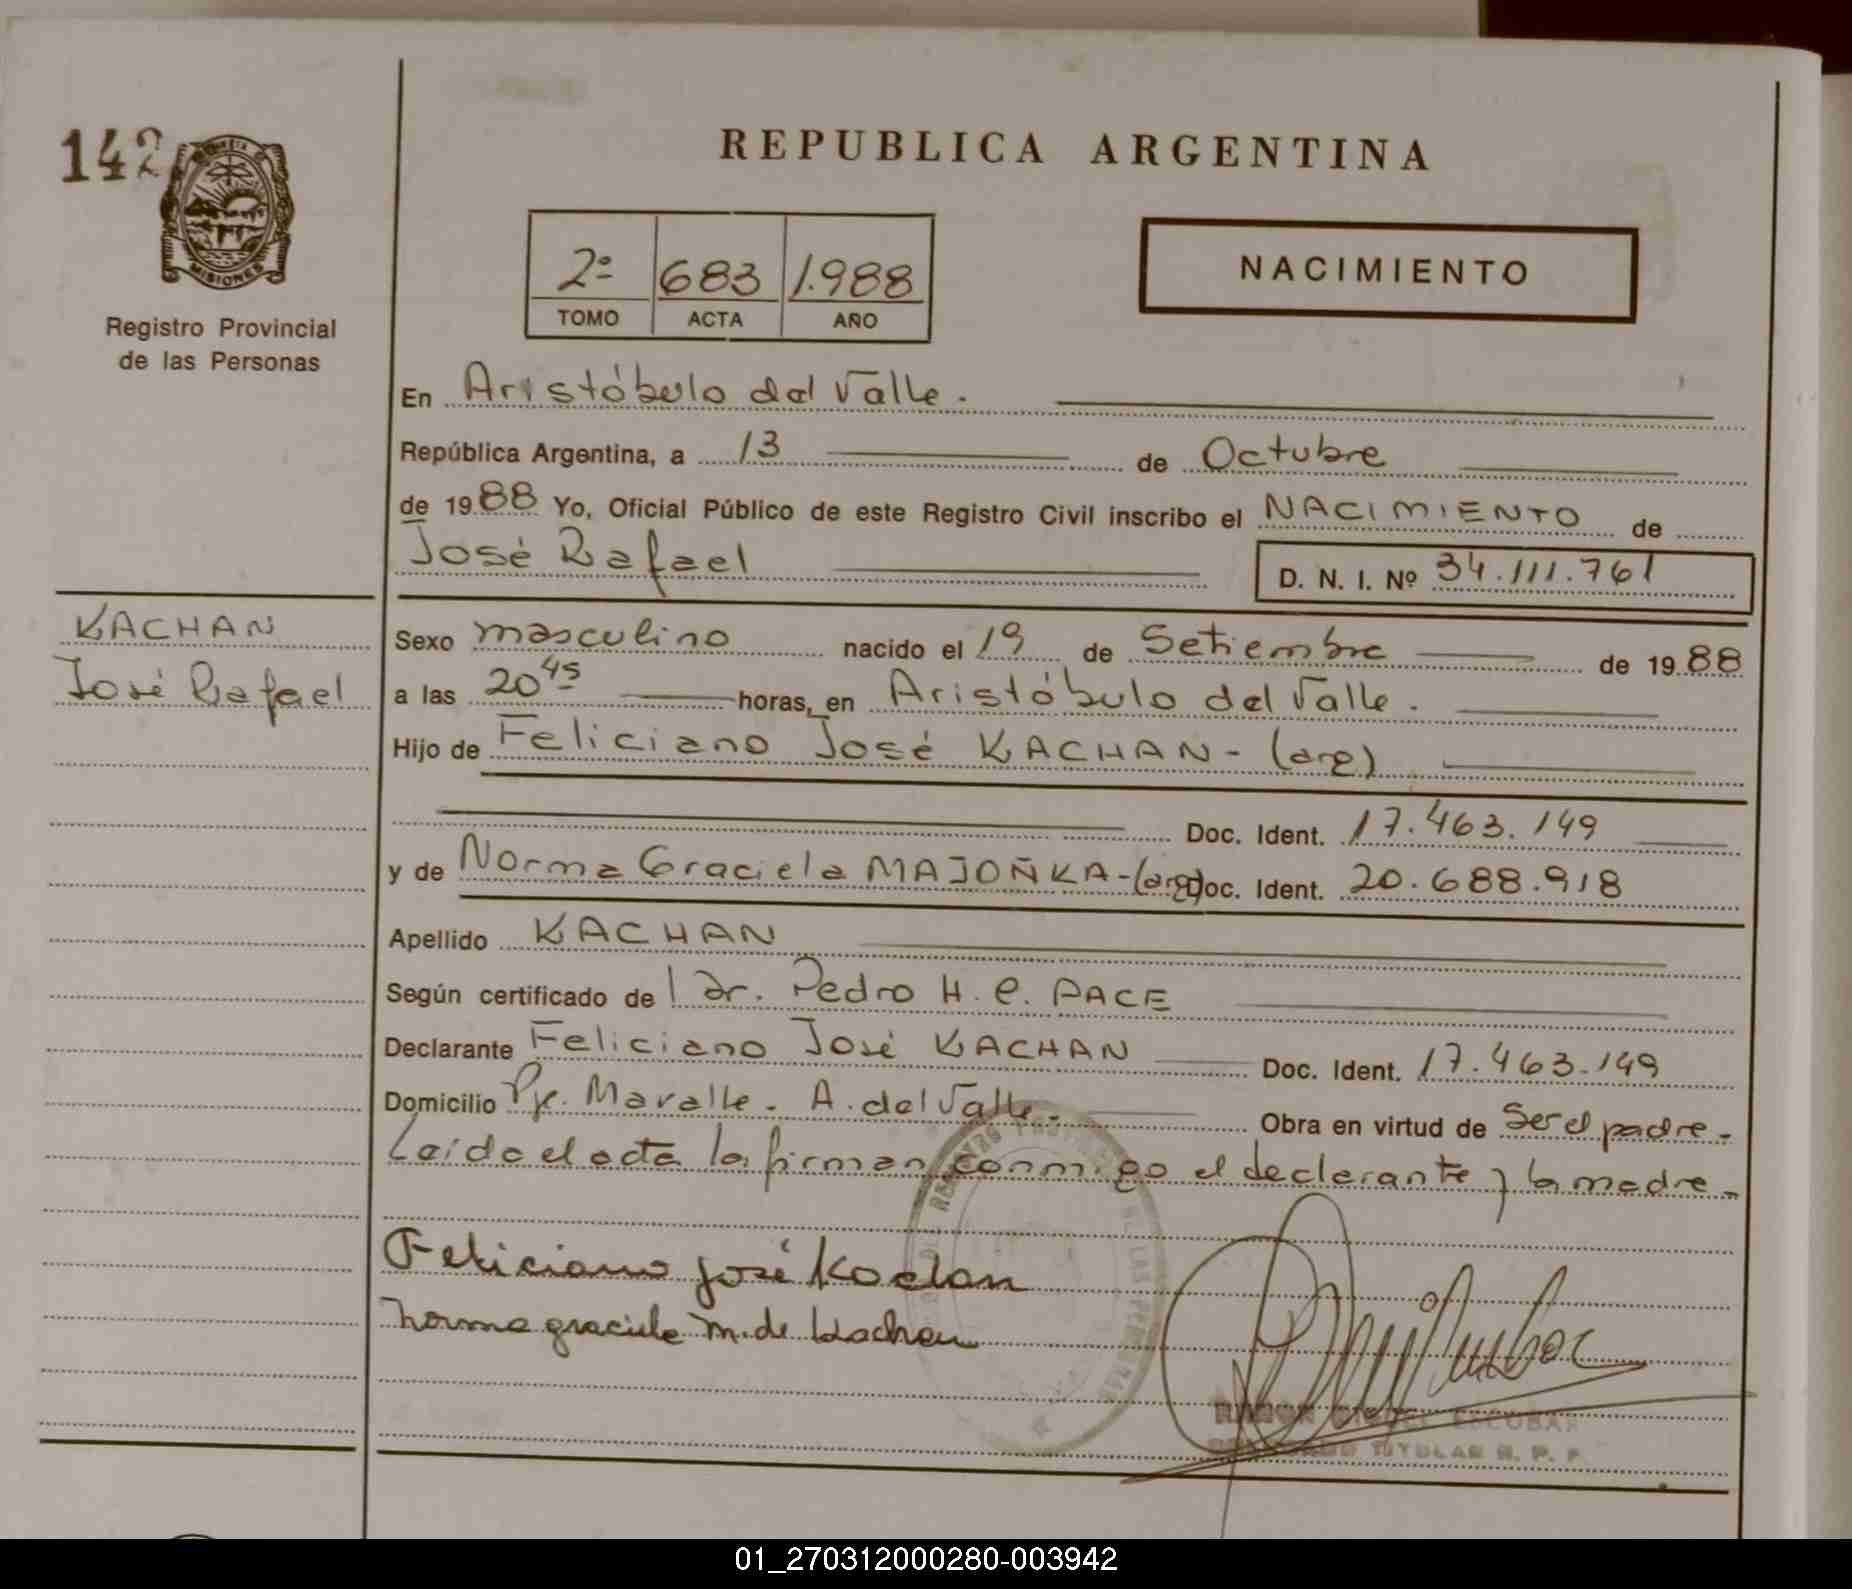 142
MISIONES
Registro Provincial
de las Personas
REPUBLICA ARGENTINA
2º 683 1.988
TOMO ACTA AÑO
NACIMIENTO
En Aristóbulo del Valle.
República Argentina, a 13 de Octubre
de 1988 Yo, Oficial Público de este Registro Civil inscribo el NACIMIENTO de
José Rafael
D. N. I. Nº 34.111.761
KACHAN
José Rafael
Sexo masculino nacido el 19 de Setiembre de 1988
a las 20 45 horas, en Aristóbulo del Valle.
Hijo de Feliciano José KACHAN - (arg)
Doc. Ident. 17.463.149
y de Norma Graciela MAJOÑKA - (arg) Doc. Ident. 20.688.918
Apellido KACHAN
Según certificado de Dr. Pedro H. C. PACE
Declarante Feliciano José KACHAN Doc. Ident. 17.463.149
Domicilio Pje. Maralle. A. del Valle. Obra en virtud de Ser el padre.
Leída el acta la firman conmigo el declarante y la madre.
Feliciano José Kachan
Norma Graciela M. de Kachan
RAMON MIGUEL ESCOBAR
TITULAR R. P. P.
01_270312000280-003942